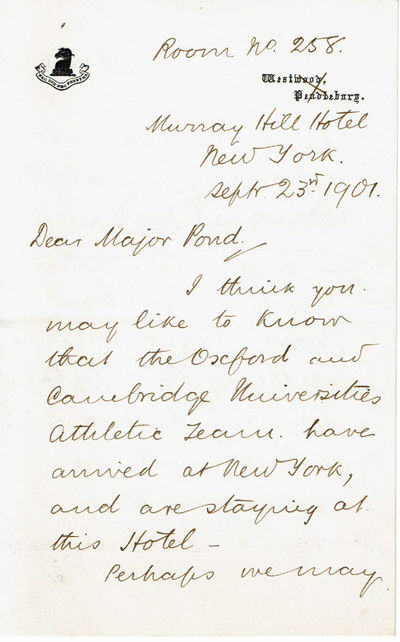 Room No. 258.
Westwood,
Pendlebury.
Murray Hill Hotel
New York.
Septr. 23rd 1901.
Dear Major Pond.
I think you
may like to know
that the Oxford and
Cambridge Universities
Athletic Team. have
arrived at New York,
and are staying at
this Hotel –
Perhaps we may